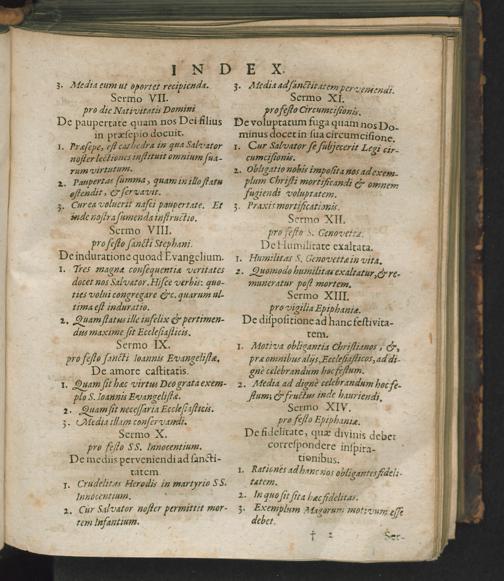 INDEX.
3. Media eum ut oportet recipienda.
Sermo VII.
pro die Nativitatis Domini
De paupertate quam nos Dei filius
in præsepio docuit.
1. Præsepe, est cathedra in qua Salvator
noster lectiones instituit omnium sua-
rum virtutum.
2. Paupertas summa, quam in illo statu
ostendit, & servavit.
3. Cur ea voluerit nasci paupertate. Et
inde nostra sumenda instructio.
Sermo VIII.
pro festo sancti Stephani.
De induratione quoad Evangelium.
1. Tres magnæ consequentiæ veritates
docet nos Salvator. Hisce verbis: quo-
ties volui congregare &c. quarum ul-
tima est induratio.
2. Quam status ille infelix & pertimen-
dus maxime sit Ecclesiasticis.
Sermo IX.
pro festo sancti Ioannis Evangelistæ.
De amore castitatis.
1. Quam sit hæc virtus Deo grata exem-
plo S. Ioannis Evangelistæ.
2. Quam sit necessaria Ecclesiasticis.
3. Media illam conservandi.
Sermo X.
pro festo SS. Innocentium.
De mediis perveniendi ad sancti-
tatem
1. Crudelitas Herodis in martyrio SS.
Innocentium.
2. Cur Salvator noster permittet mor-
tem Infantium.
3. Media ad sanctitatem perveniendi.
Sermo XI.
pro festo Circumcisionis.
De voluptatum fuga quam nos Do-
minus docet in sua circumcisione.
1. Cur Salvator se subjecerit Legi cir-
cumcisionis.
2. Obligatio nobis imposita nos ad exem-
plum Christi mortificandi & omnem
fugiendi voluptatem.
3. Praxis mortificationis.
Sermo XII.
pro festo S. Genovefæ.
De Humilitate exaltata.
1. Humilitas S. Genovefæ in vita.
2. Quomodo humilitas exaltatur, & re-
muneratur post mortem.
Sermo XIII.
pro vigilia Epiphaniæ.
De dispositione ad hanc festivita-
tem.
1. Motiva obligantia Christianos, &,
præ omnibus alijs, Ecclesiasticos, ad di-
gnè celebrandum hoc festum.
2. Media ad dignè celebrandum hoc fe-
stum, & fructus inde hauriendi.
Sermo XIV.
pro festo Epiphaniæ.
De fidelitate, quæ divinis debet
correspondere inspira-
tionibus.
1. Rationes ad hanc nos obligantes fideli-
tatem.
2. In quo sit sita hæc fidelitas.
3. Exemplum Magorum motivum esse
debet.
† 2 Ser-